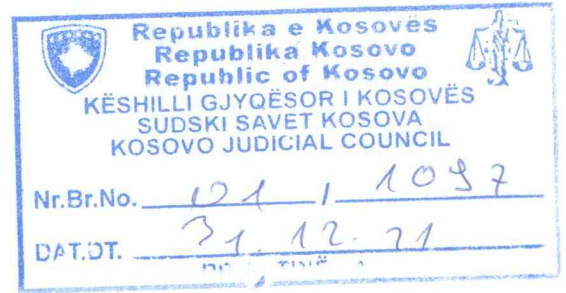 Republika e Kosovës
Republika Kosovo
Republic of Kosovo
KËSHILLI GJYQËSOR I KOSOVËS
SUDSKI SAVET KOSOVA
KOSOVO JUDICIAL COUNCIL
Nr.Br.No. 01 / 1097
DAT.DT. 31.12.21